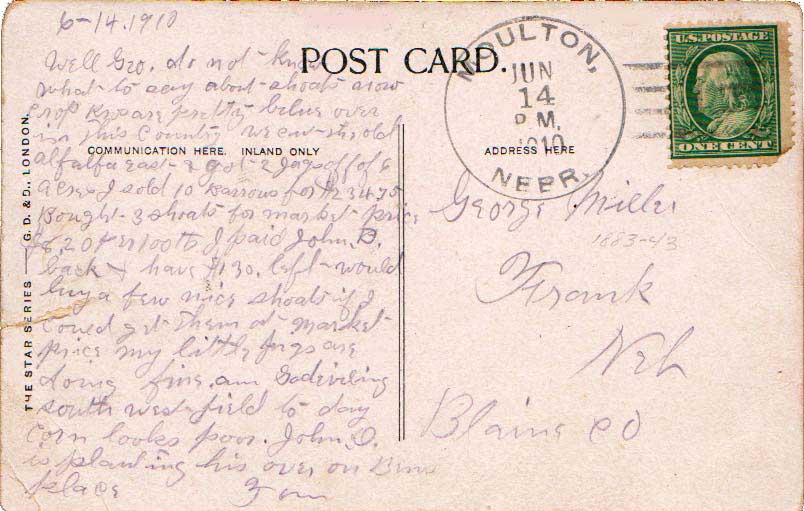 6-14.1910
POST CARD.
COMMUNICATION HERE. INLAND ONLY
ADDRESS HERE
THE STAR SERIES — G. D. & D., LONDON.
MOULTON,
JUN
14
P M,
1910
NEBR.
U.S. POSTAGE
ONE CENT
Well Geo. do not know
what to say about shoats now
crop are pretty blue over
in this County we cut the old
alfalfa east & got 2 Jags off of 6
acres I sold 10 Barrows for $234.75
Bought 3 shoats for market price
8.20 per 100 lb I paid John. D.
back & have $130. left would
buy a few nice shoats if I
could get them at market
price my little pigs are
doing fine. am Godeviling
south west field to day
Corn looks poor. John. D.
is planting his over on
place Tom
George Miller
1883-43
Frank
Neb
Blaine CO